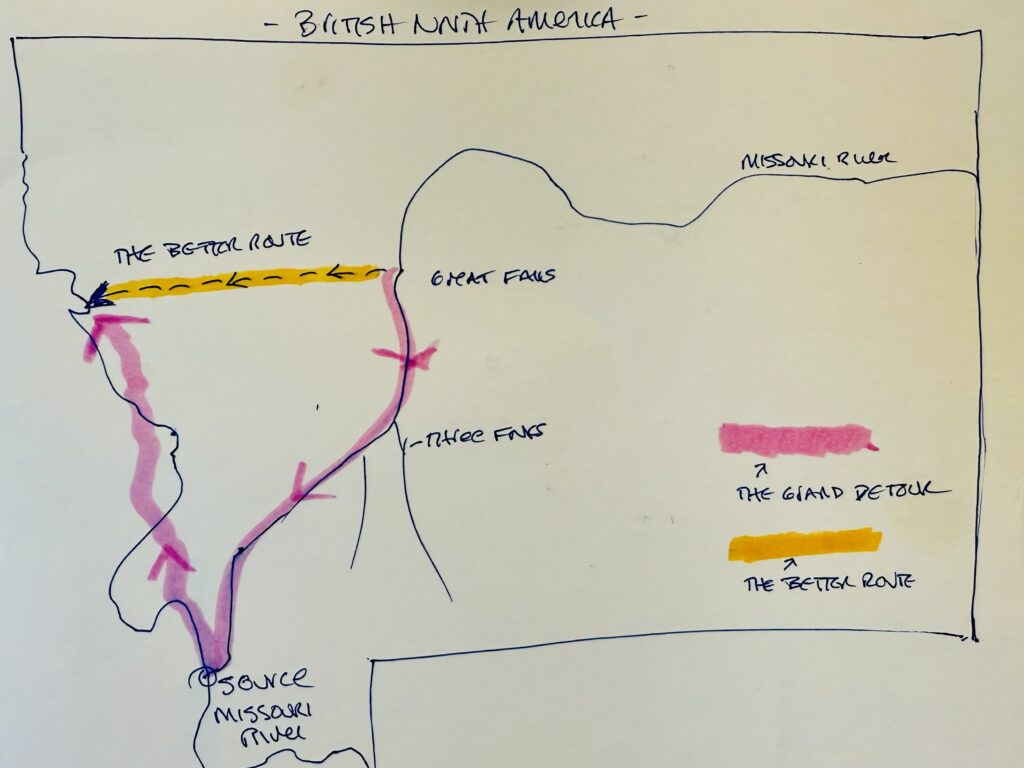 - BRITISH NORTH AMERICA -
MISSOURI RIVER
THE BETTER ROUTE
GREAT FALLS
THREE FORKS
THE GRAND DETOUR
THE BETTER ROUTE
SOURCE
MISSOURI
RIVER